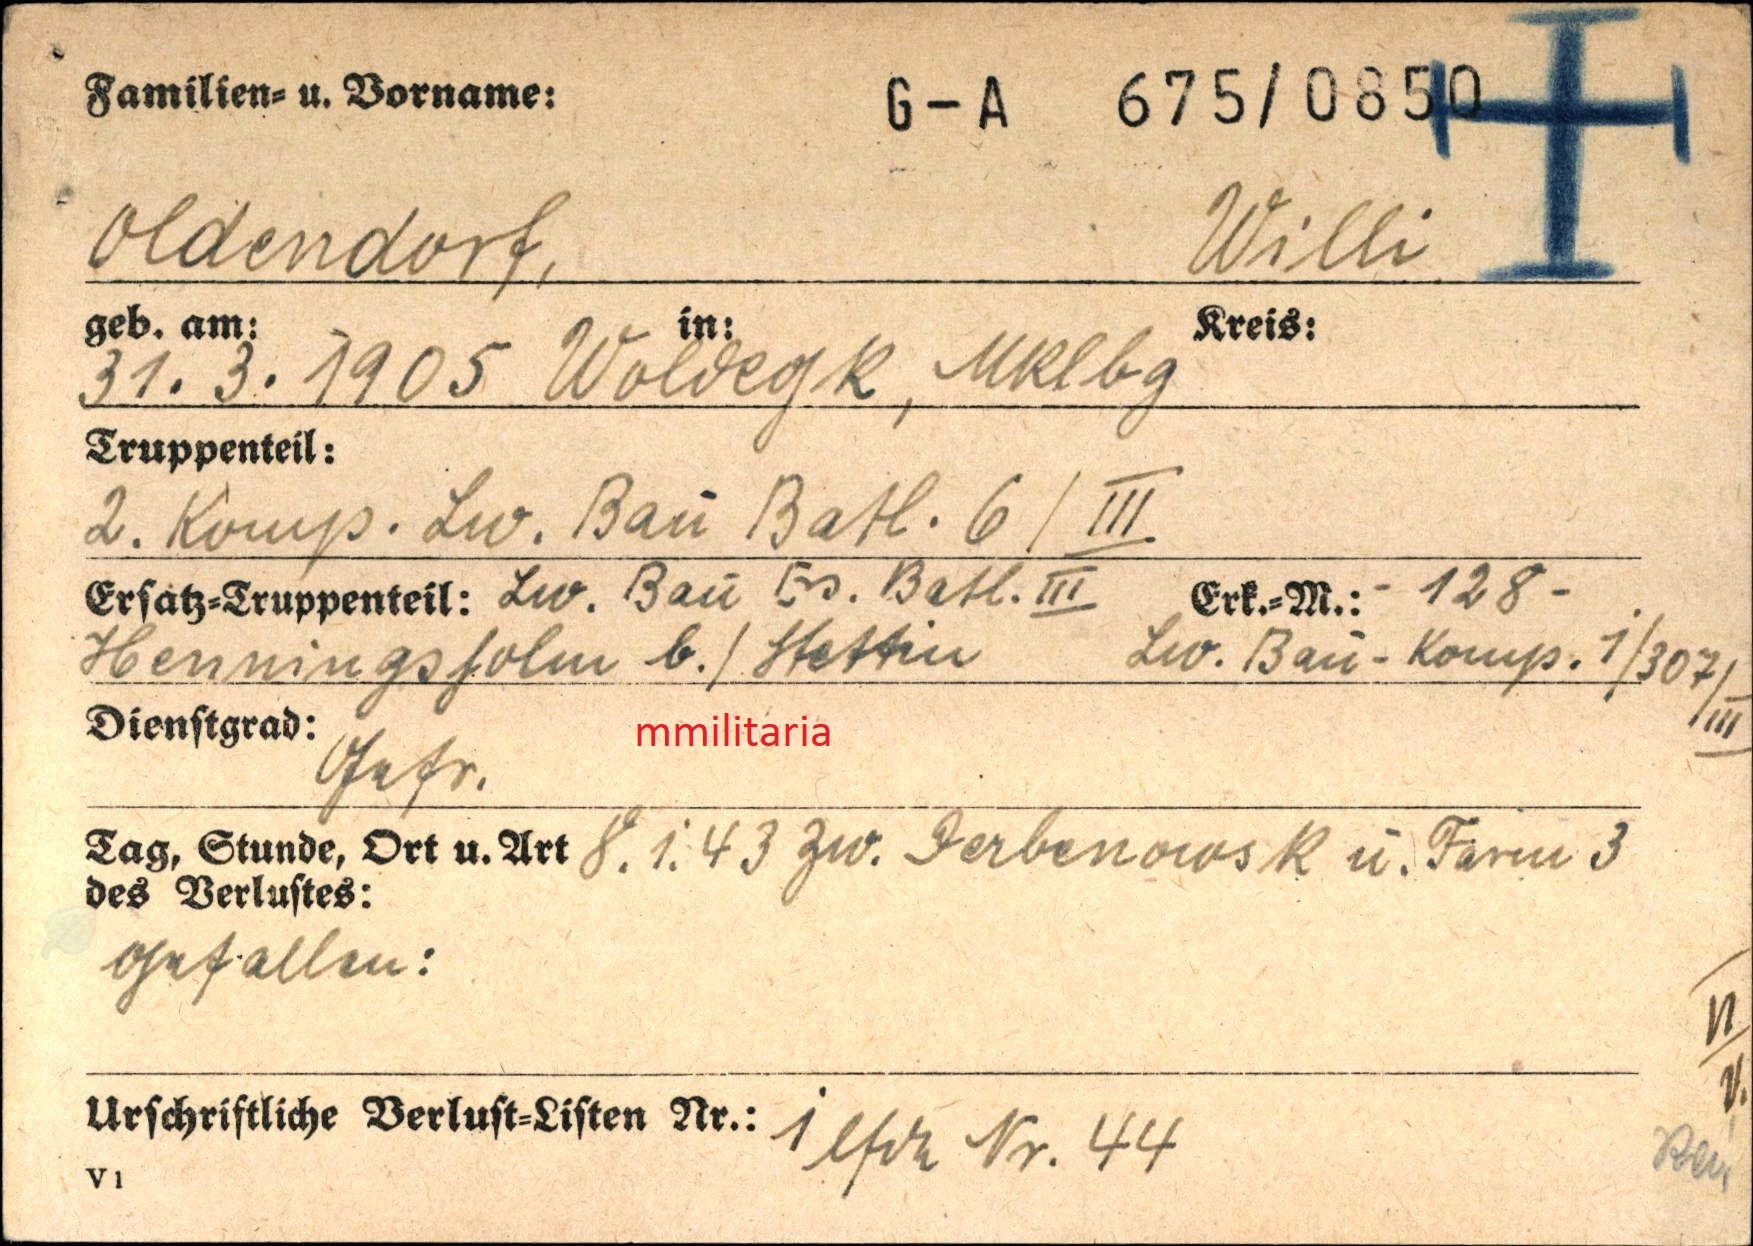 Familien- u. Vorname: G-A 675/0850
Oldendorf, Willi
geb. am: in: Kreis:
31. 3. 1905 Woldegk, Mklbg
Truppenteil:
2. Komp. Lw. Bau Batl. 6/III
Ersatz-Truppenteil: Lw. Bau Ers. Batl. III Erk.-M.: - 128 -
Henningsholm b./Stettin Lw. Bau-Komp. 1/307/III
Dienstgrad: mmilitaria
Gefr.
Tag, Stunde, Ort u. Art 8.1.43 Zw. Derbenowsk u. Farm 3
des Verlustes:
gefallen:
VI
V.
Urschriftliche Verlust-Listen Nr.: 1 lfde Nr. 44
V 1